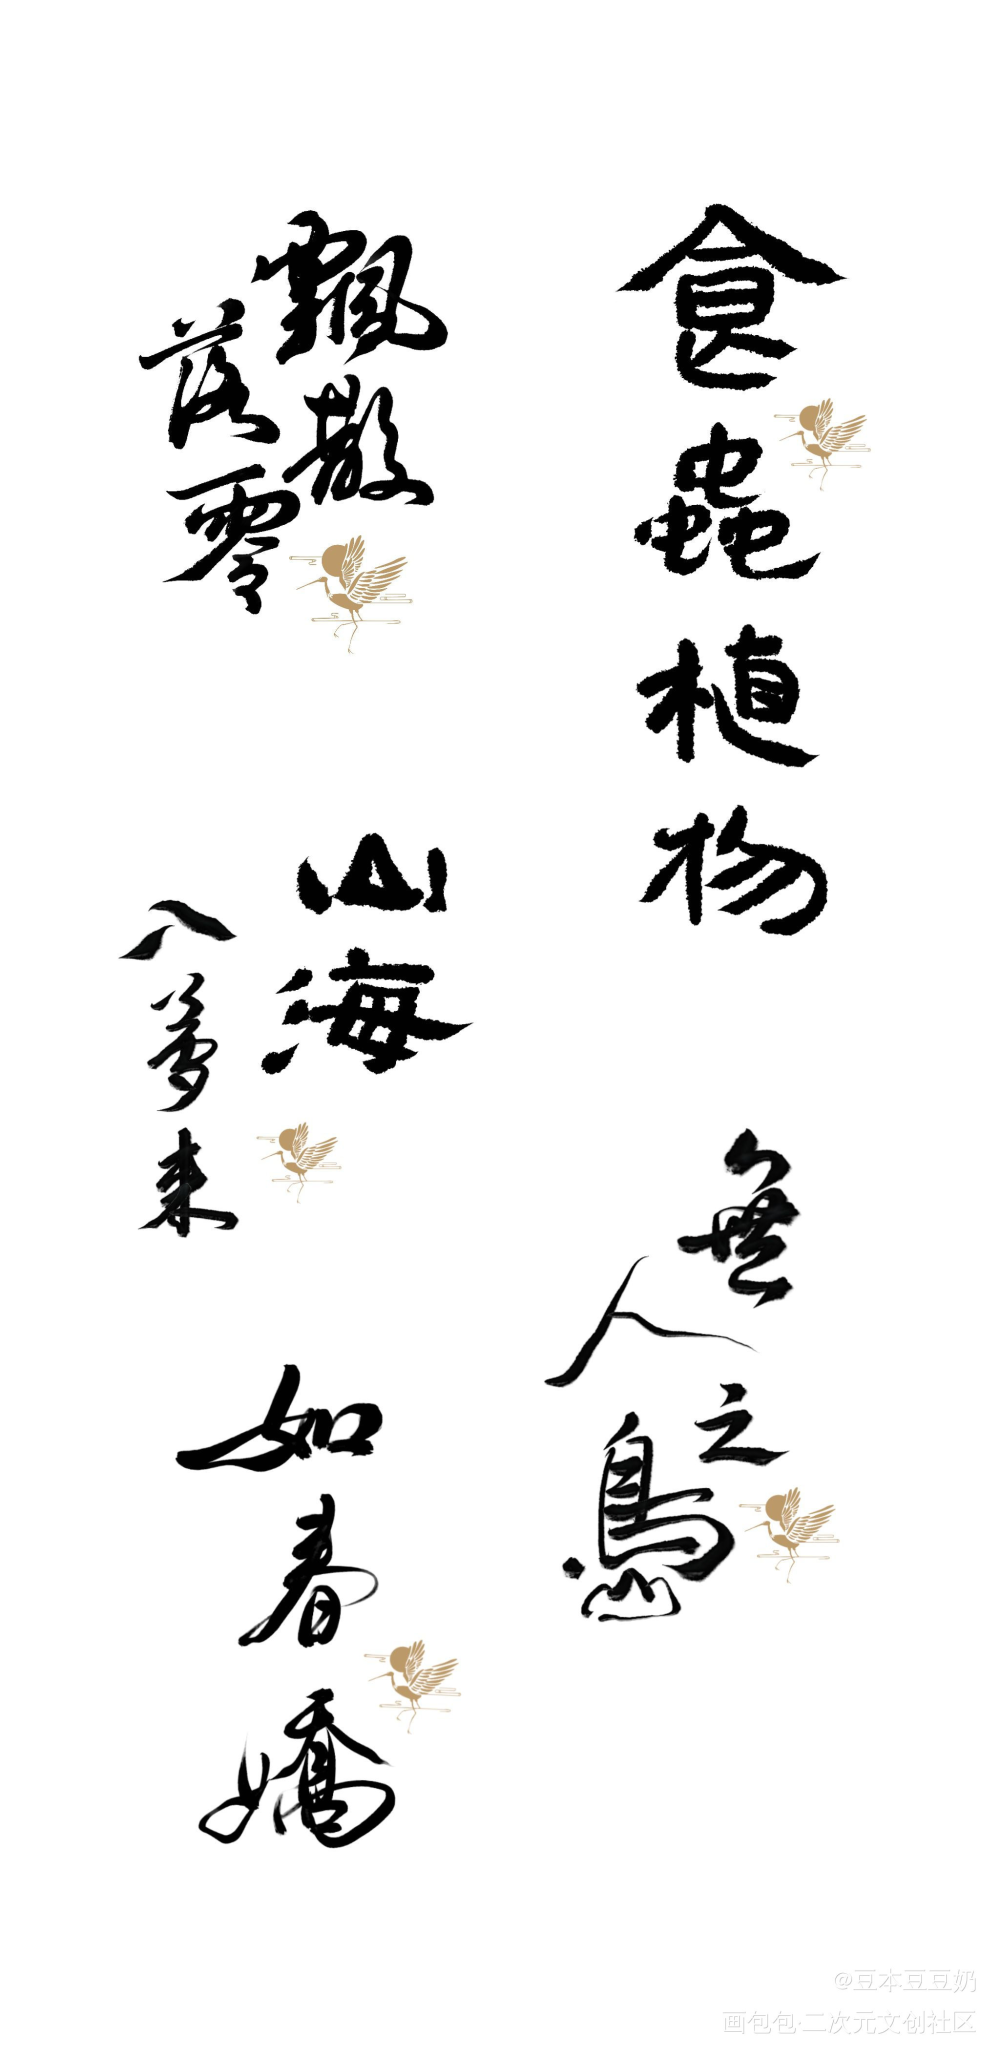 食蟲植物
飄散
落零
山海
入夢来
無
人
之
島
如春嬌
@豆本豆豆奶
画包包·二次元文创社区